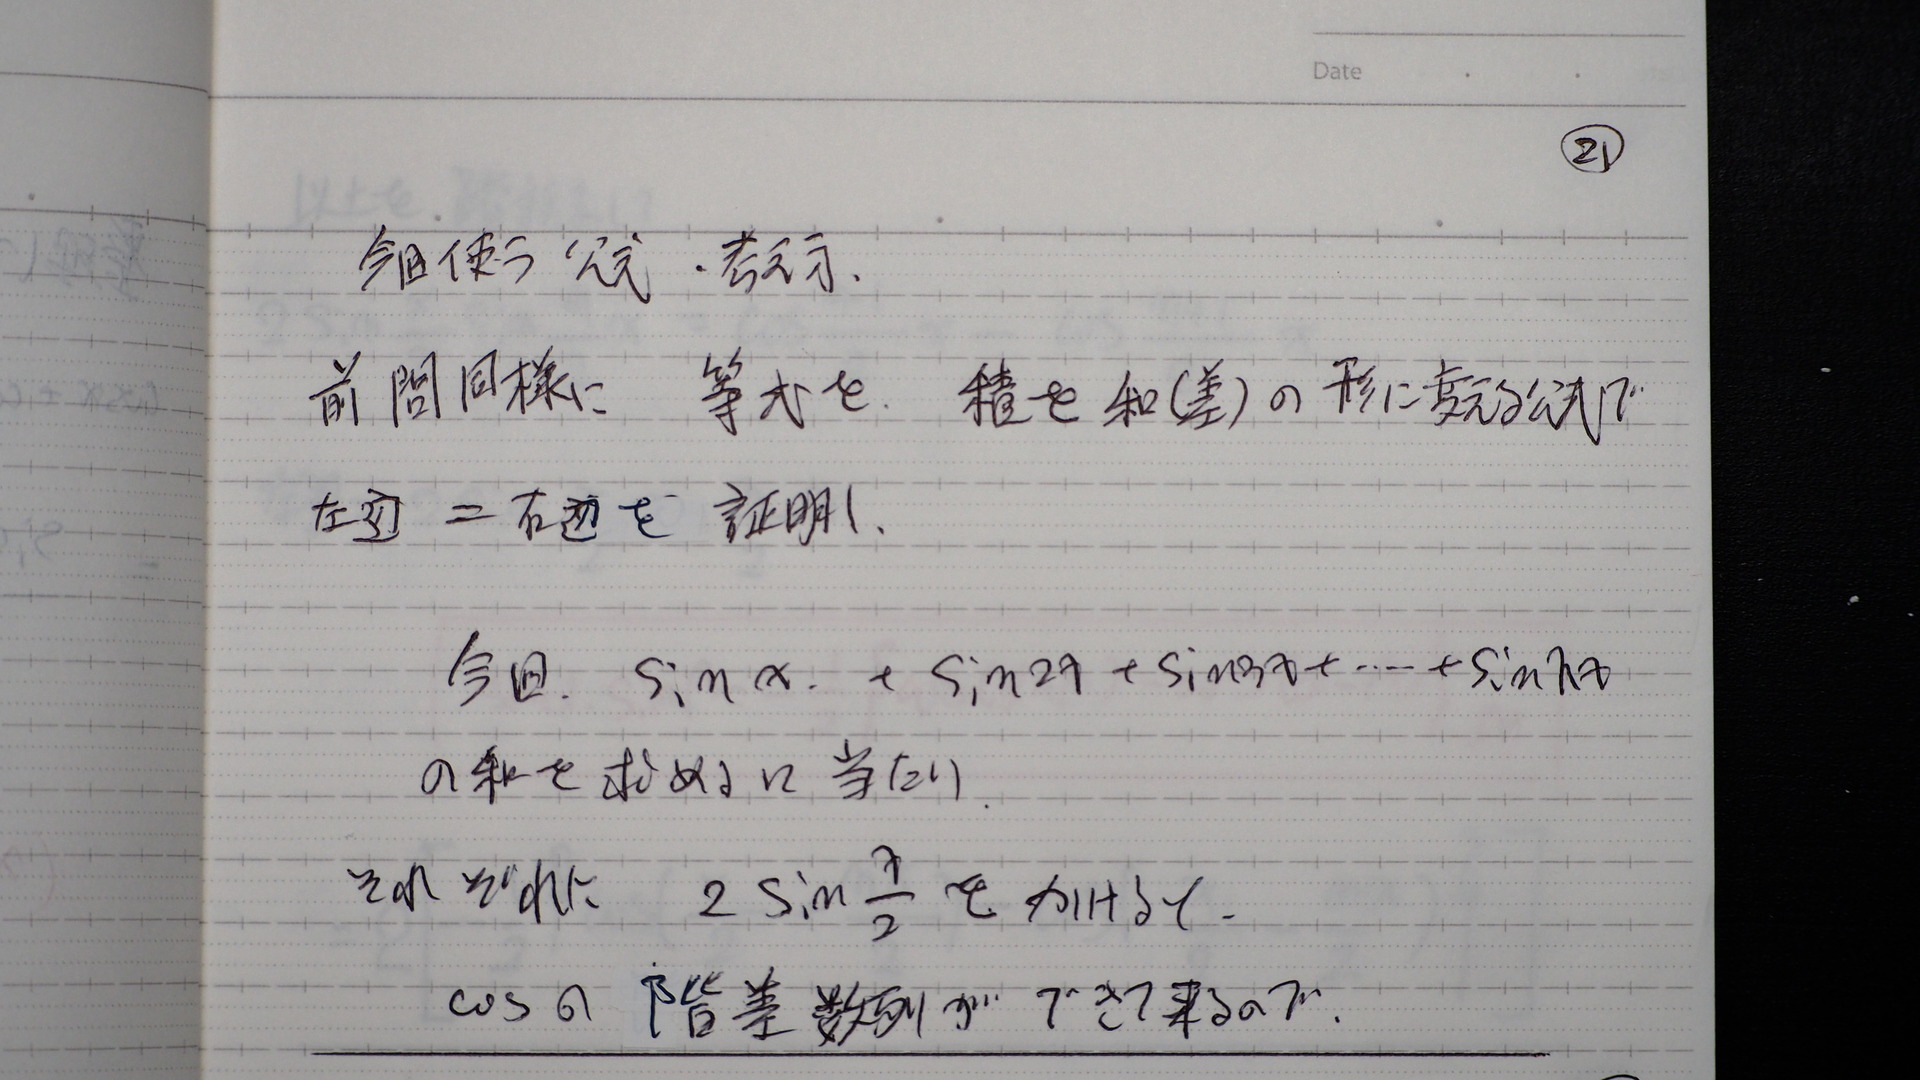 Date
㉑
今回使う公式・考え方、
前問同様に 等式を、積を和(差)の形に変える公式で
左辺 = 右辺を 証明し、
今回、sin x + sin2x + sin3x + ‥‥ + sin7x
の和を求めるに当たり、
それぞれに 2 sin x/2 を かけると、
cosの 階差数列が できて来るので、